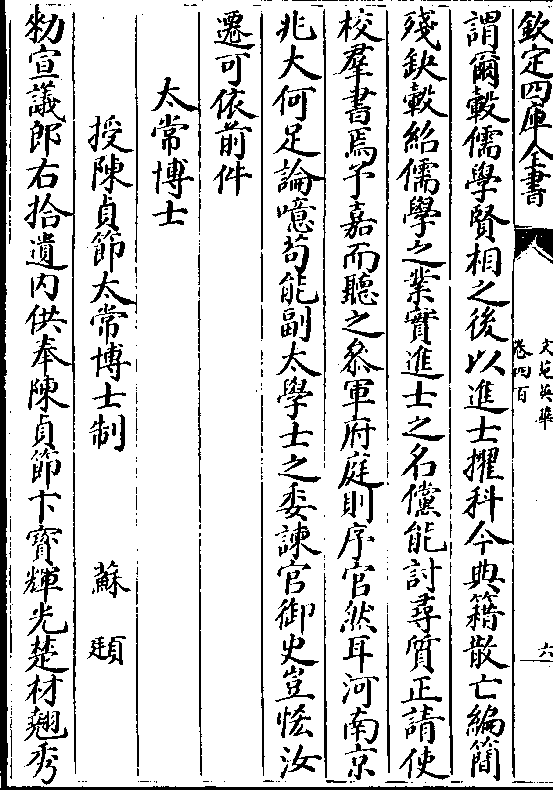 欽定四庫全書
文苑英華
卷四百
六
謂爾轂儒學賢相之後以進士擢科今典籍散亡編簡
殘缺轂紹儒學之業實進士之名儻能討尋質正請使
校羣書焉予嘉而聽之叅軍府庭則序官然耳河南京
兆大何足論噫苟能副太學士之委諫官御史豈恡汝
遷可依前件
太常博士
授陳貞節太常博士制 蘇頲
勑宣議郎右拾遺内供奉陳貞節卞寳輝光楚材翹秀